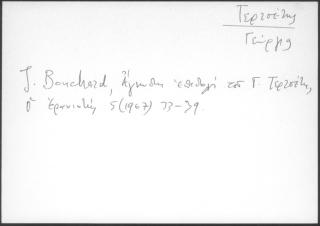 Τερτσέτης
Γεώργης
J. Bouchard, Άγνωστη επιστολή του Γ. Τερτσέτη,
Ὁ Ἐρανιστής 5 (1967) 33-39.